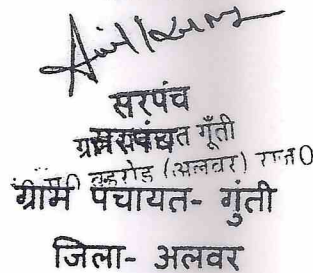 Anil Kumar
सरपंच
ग्राम पंचायत गूँती
बहरोड़ (अलवर) राज0
ग्राम पंचायत- गुंती
जिला- अलवर